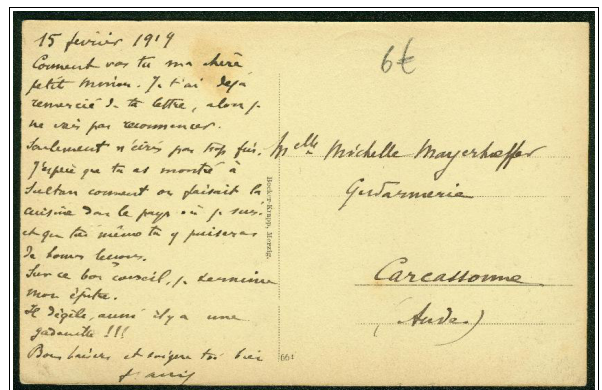 15 fevrier 1919
Comment vas tu ma chère
petit Mimion. Je t'ai dejà
remercié de ta lettre, alors je
ne vais pas recommencer.
Seulement n'écris pas trop fin.
J'espère que tu as montré à
Sultan comment on faisait la
cuisine dans le pays où je suis
et que toi même tu y puiseras
de bonnes leçons.
Sur ce bon conseil, je termine
mon épitre.
Il dégèle, aussi il y a une
gadouille !!!
Bons baisers et soigne toi bien
6€
Melle Michelle Mayerhoeffer
Gendarmerie
Carcassonne
(Aude)
Becker-Krapp, Merzig.
661